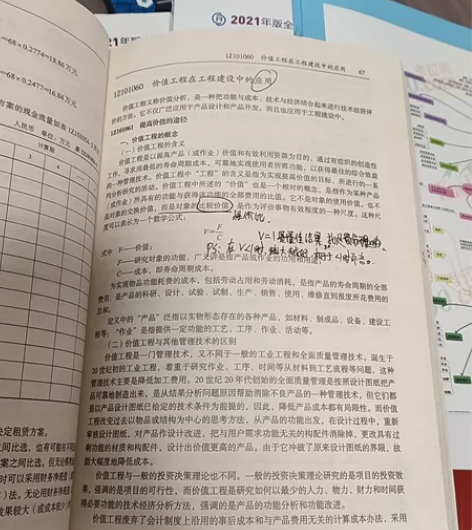 =68×0.2774=18.86万元
=68×0.2477=16.84万元
方案的现金流量如表
人民币 单位：万元
计算期
3 4
决定租赁方案。
2021年版全
1Z101060 价值工程在工程建设中的应用 67
1Z101060 价值工程在工程建设中的应用
价值工程又称价值分析，是一种把功能与成本、技术与经济结合起来进行技术经济评
价的方法。它不仅广泛应用于产品设计和产品开发，而且也应用于工程建设中。
1Z101061 提高价值的途径
一、价值工程的概念
（一）价值工程的含义
价值工程是以提高产品（或作业）价值和有效利用资源为目的，通过有组织的创造性
工作，寻求用最低的寿命周期成本，可靠地实现使用者所需功能，以获得最佳的综合效益
的一种管理技术。价值工程中“工程”的含义是指为实现提高价值的目标，所进行的一系
列分析研究的活动。价值工程中所述的“价值”也是一个相对的概念，是指作为某种产品
（或作业）所具有的功能与获得该功能的全部费用的比值。它不是对象的使用价值，也不
是对象的交换价值，而是对象的比较价值，是作为评价事物有效程度的一种尺度。这种尺
度可以表示为一个数学公式：
V=F/C
V=1
式中 V——价值；
F——研究对象的功能，广义讲是指产品或作业的功用和用途；
C——成本，即寿命周期成本。
为实现物品功能耗费的成本，包括劳动占用和劳动消耗，是指产品的寿命周期的全部
费用，是产品的科研、设计、试验、试制、生产、销售、使用、维修直到报废所花费用的
总和。
定义中的“产品”泛指以实物形态存在的各种产品，如材料、制成品、设备、建设工
程等；“作业”是指提供一定功能的工艺、工序、作业、活动等。
（二）价值工程与其他管理技术的区别
价值工程是一门管理技术，又不同于一般的工业工程和全面质量管理技术。诞生于
20世纪初的工业工程，着重于研究作业、工序、时间等从材料到工艺流程等问题，这种
管理技术主要是降低加工费用。20世纪20年代创始的全面质量管理是按照设计图纸把产
品可靠地制造出来，是从结果分析问题原因帮助消除不良产品的一种管理技术。但它们都
是以产品设计图纸已给定的技术条件为前提的，因此，降低产品成本都有局限性。而价值
工程改变过去以物品或结构为中心的思考方法，从产品的功能出发，在设计过程中，重新
审核设计图纸，对产品作设计改进，把与用户需求功能无关的构配件消除掉，更改具有过
剩功能的材质和构配件，设计出价值更高的产品。由于它冲破了原来设计图纸的界限，故
能大幅度地降低成本。
价值工程与一般的投资决策理论也不同。一般的投资决策理论研究的是项目的投资效
果，强调的是项目的可行性，而价值工程是研究如何以最少的人力、物力、财力和时间获
得必要功能的技术经济分析方法，强调的是产品的功能分析和功能改进。
价值工程废弃了会计制度上沿用的事后成本和与产品费用无关的计算成本办法，采用